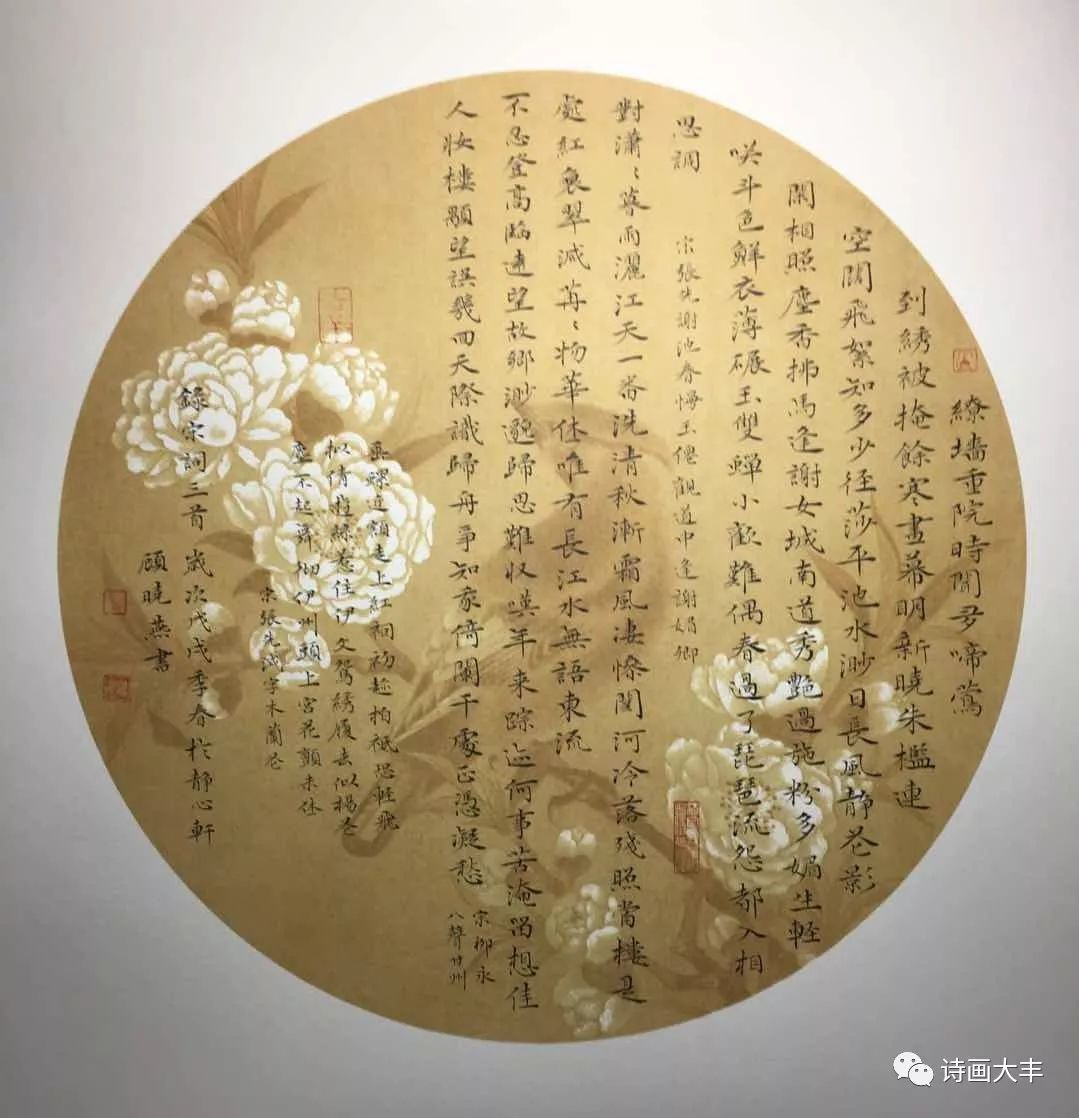 繚墻重院時聞多啼鶯
到綉被掩餘寒畫幕明新曉朱檻連
空闊飛絮知多少徑莎平池水渺日長風靜花影
閑相照塵香拂馬逢謝女城南道秀艷過施粉多媚生輕
咲斗色鮮衣薄碾玉雙蟬小歡難偶春過了琵琶流怨都入相
思調 宋張先謝池春慢玉僊觀道中逢謝媚卿
對瀟〻暮雨灑江天一番洗清秋漸霜風凄慘関河冷落殘照當樓是
處紅衰翠減苒〻物華休唯有長江水無語東流
不忍登高臨遠望故鄉渺邈歸思難収嘆年来踪迹何事苦淹留想佳
人妝樓顒望誤幾回天際識歸舟爭知我倚闌干處正憑凝愁
宋柳永
八聲甘州
垂螺近額走上紅裀初趁拍祗恐輕飛
拟倩遊絲惹住伊文鴛綉履去似楊花
塵不起舞彻伊州頭上宮花顫未休
宋張先減字木蘭花
錄宋詞三首 歲次戊戌季春於靜心軒
顧曉燕書
诗画大丰